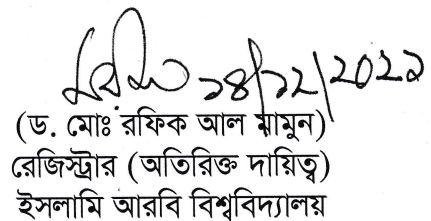 ১৪/১২/2022
(ড. মোঃ রফিক আল মামুন)
রেজিস্ট্রার (অতিরিক্ত দায়িত্ব)
ইসলামি আরবি বিশ্ববিদ্যালয়